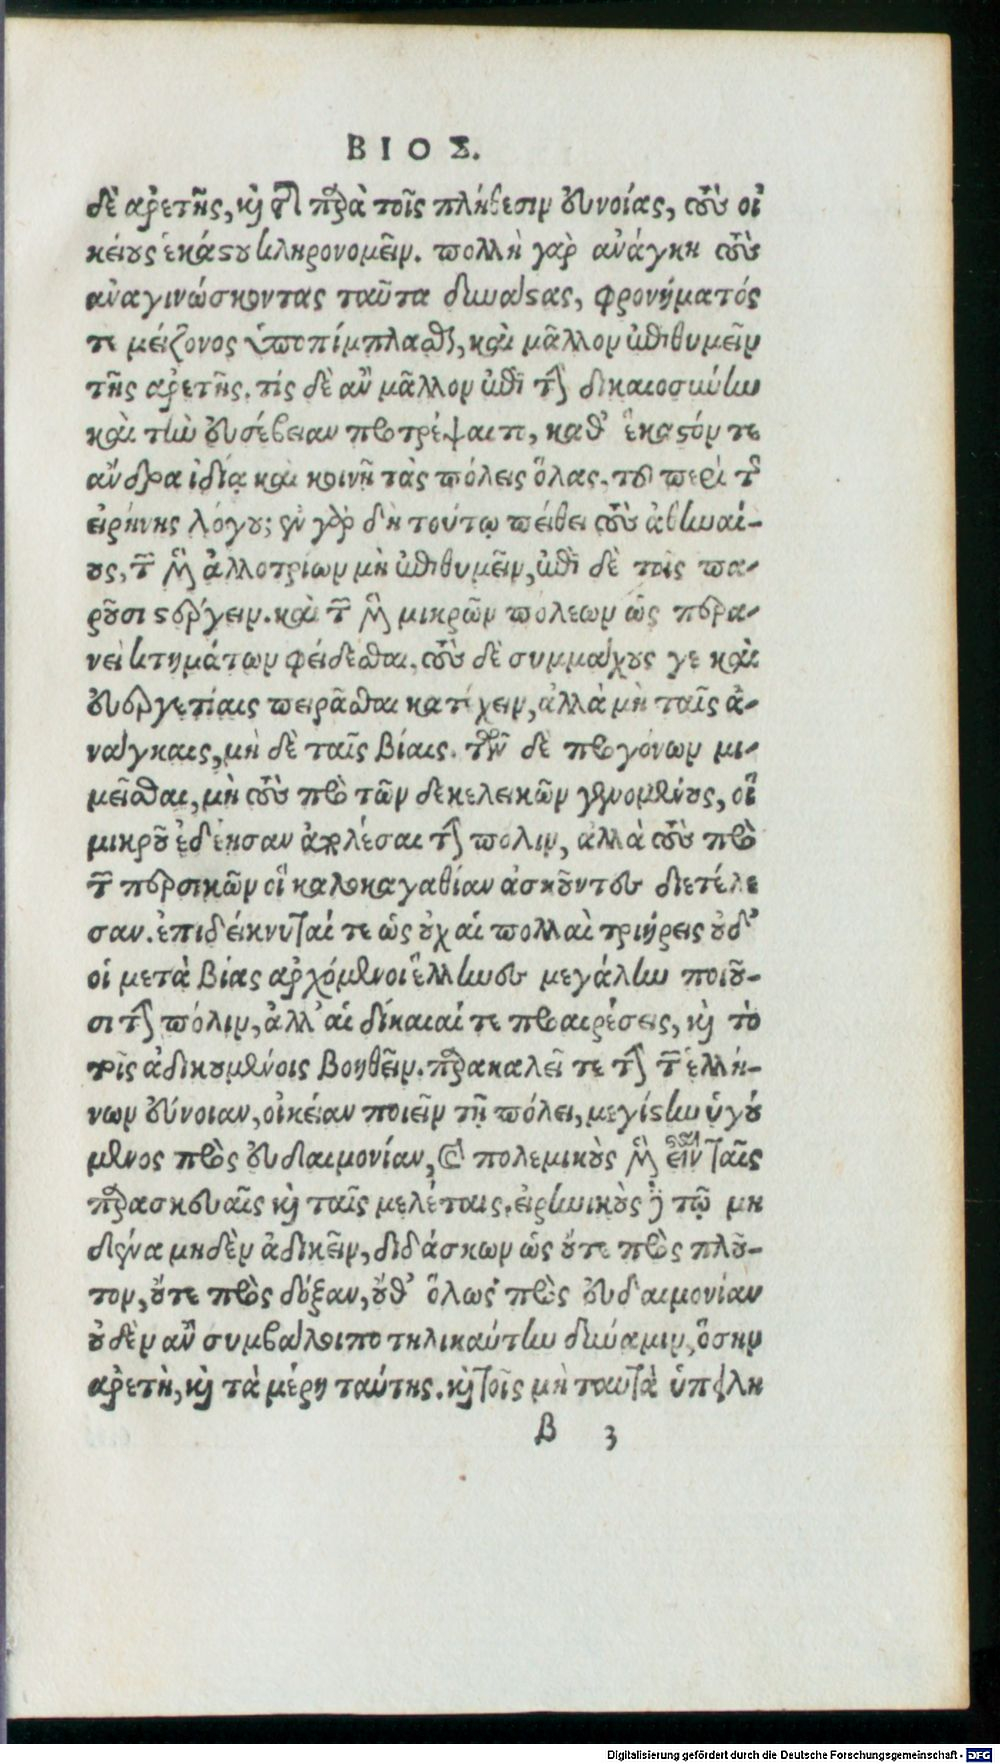 ΒΙΟΣ.
δὲ ἀρετῆς, καὶ τῆς παρὰ τοῖς πλήθεσιν εὐνοίας, τοὺς οἰ
κείους ἑκάστου κληρονομεῖν. πολλὴ γὰρ ἀνάγκη τοὺς
ἀναγινώσκοντας ταῦτα δυνάστας, φρονήματός
τι μείζονος ὑποπίμπλασθαι, καὶ μᾶλλον ἐπιθυμεῖν
τῆς ἀρετῆς. τίς δὲ ἂν μᾶλλον ἐπὶ τὴν δικαιοσύνην
καὶ τὴν εὐσέβειαν προτρέψαιτο, καθ' ἕκαστόν τε
ἄνδρα ἰδίᾳ καὶ κοινῇ τὰς πόλεις ὅλας, τοῦ περὶ τῆς
εἰρήνης λόγου; ἐν γὰρ δὴ τούτῳ πείθει τοὺς ἀθηναί-
ους, τῶν μὲν ἀλλοτρίων μὴ ἐπιθυμεῖν, ἐπὶ δὲ τοῖς πα-
ροῦσι στέργειν. καὶ τῶν μὲν μικρῶν πόλεων ὡς περα-
νεὶ κτημάτων φείδεσθαι. τοὺς δὲ συμμάχους γε καὶ
εὐεργετίαις πειρᾶσθαι κατέχειν, ἀλλὰ μὴ ταῖς ἀ-
νάγκαις, μὴ δὲ ταῖς βίαις. τῶν δὲ προγόνων μι-
μεῖσθαι, μὴ τοὺς πρὸ τῶν δεκελεικῶν γενομένους, οἳ
μικροῦ ἐδέησαν ἀπολέσαι τὴν πόλιν, ἀλλὰ τοὺς πρὸ
τῶν περσικῶν οἳ καλοκαγαθίαν ἀσκοῦντες διετέλε
σαν. ἐπιδείκνυταί τε ὡς οὐχ αἱ πολλαὶ τριήρεις οὐδ'
οἱ μετὰ βίας ἀρχόμενοι ἕλληνες μεγάλην ποιοῦ-
σι τὴν πόλιν, ἀλλ' αἱ δίκαιαί τε προαιρέσεις, καὶ τὸ
τοῖς ἀδικουμένοις βοηθεῖν. παρακαλεῖ τε τὴν τῶν ἑλλή-
νων εὔνοιαν, οἰκείαν ποιεῖν τῇ πόλει, μεγίστην ἡγού
μενος πρὸς εὐδαιμονίαν, καὶ πολεμικοὺς μὲν εἶναι ταῖς
παρασκευαῖς καὶ ταῖς μελέταις, εἰρηνικοὺς δὲ τῷ μη
δένα μηδὲν ἀδικεῖν, διδάσκων ὡς οὔτε πρὸς πλοῦ-
τον, οὔτε πρὸς δόξαν, οὔθ' ὅλως πρὸς εὐδαιμονίαν
οὐδὲν ἂν συμβάλοιτο τηλικαύτην δύναμιν, ὅσην
ἀρετὴ, καὶ τὰ μέρη ταύτης. καὶ τοῖς μὴ ταῦτα ὑπειλη
β 3
Digitalisierung gefördert durch die Deutsche Forschungsgemeinschaft - DFG